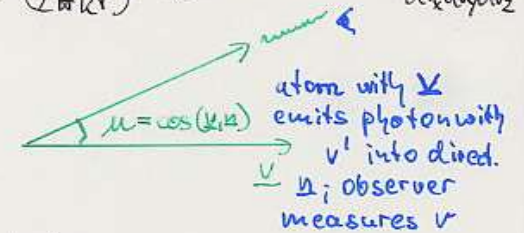 atom with v
μ = cos(v,n) emits photon with
ν' into direct.
v n; observer
measures ν